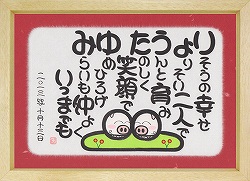 りそうの幸せ
よりそい二人で
うんと育み
たのしく笑顔で
ゆめひろげ
みらいも仲よく
いつまでも
二〇一三年 十月十三日